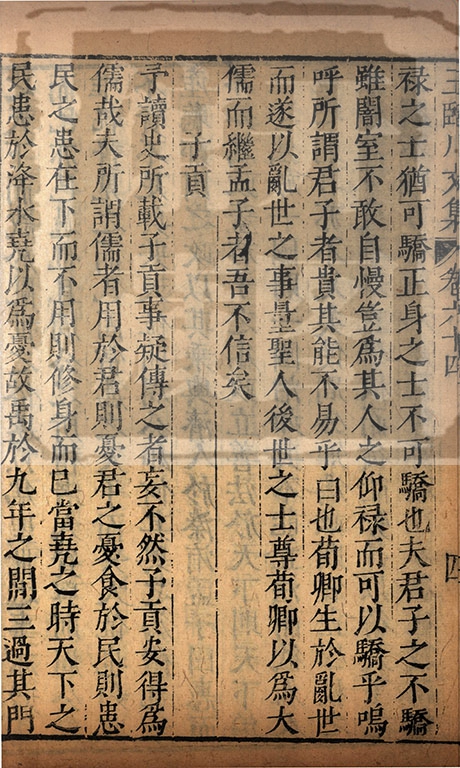 王臨川文集 卷六十四 四
祿之士猶可驕正身之士不可驕也夫君子之不驕
雖闇室不敢自慢豈爲其人之仰祿而可以驕乎嗚
呼所謂君子者貴其能不易乎世也荀卿生於亂世
而遂以亂世之事量聖人後世之士尊荀卿以爲大
儒而繼孟子者吾不信矣
子貢
予讀史所載子貢事疑傳之者妄不然子貢安得爲
儒哉夫所謂儒者用於君則憂君之憂食於民則患
民之患在下而不用則修身而已當堯之時天下之
民患於洚水堯以爲憂故禹於九年之間三過其門